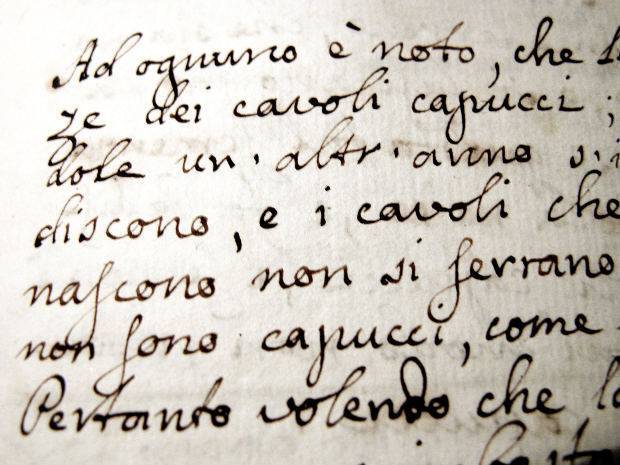 Ad ognuno è noto, che l
ze dei cavoli capucci;
dole un'altr'anno s'i
discono, e i cavoli che
nascono non si serrano
non sono capucci, come
Pertanto volendo che la